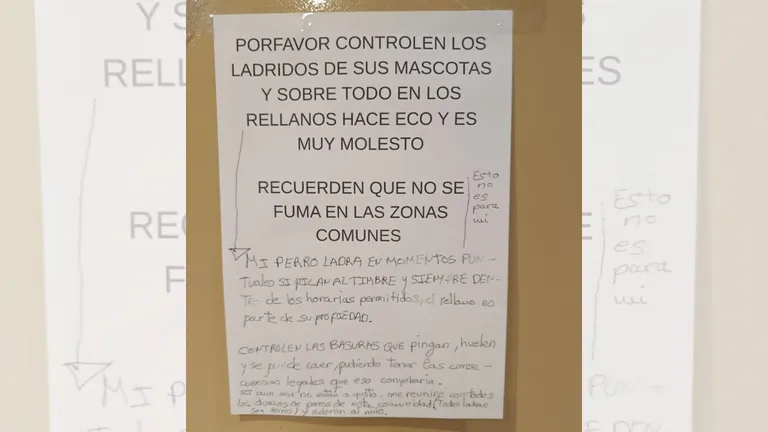 PORFAVOR CONTROLEN LOS
LADRIDOS DE SUS MASCOTAS
Y SOBRE TODO EN LOS
RELLANOS HACE ECO Y ES
MUY MOLESTO
RECUERDEN QUE NO SE
FUMA EN LAS ZONAS
COMUNES
Esto
no
es
para
mi
MI PERRO LADRA EN MOMENTOS PUN-
TUALES SI PICAN AL TIMBRE Y SIEMPRE DEN-
TRO de los horarios permitidos, el rellano es
parte de su propIEDAD.
CONTROLEN LAS BASURAS QUE pingan, huelen
y se puede caer, pudiendo tomar las conse-
cuencias legales que eso conllevaria.
si aun asi no están a gusto, me reuniré con todos
los dueños de perros de esta comunidad (Todos ladran
son perros) y adoran al mio.